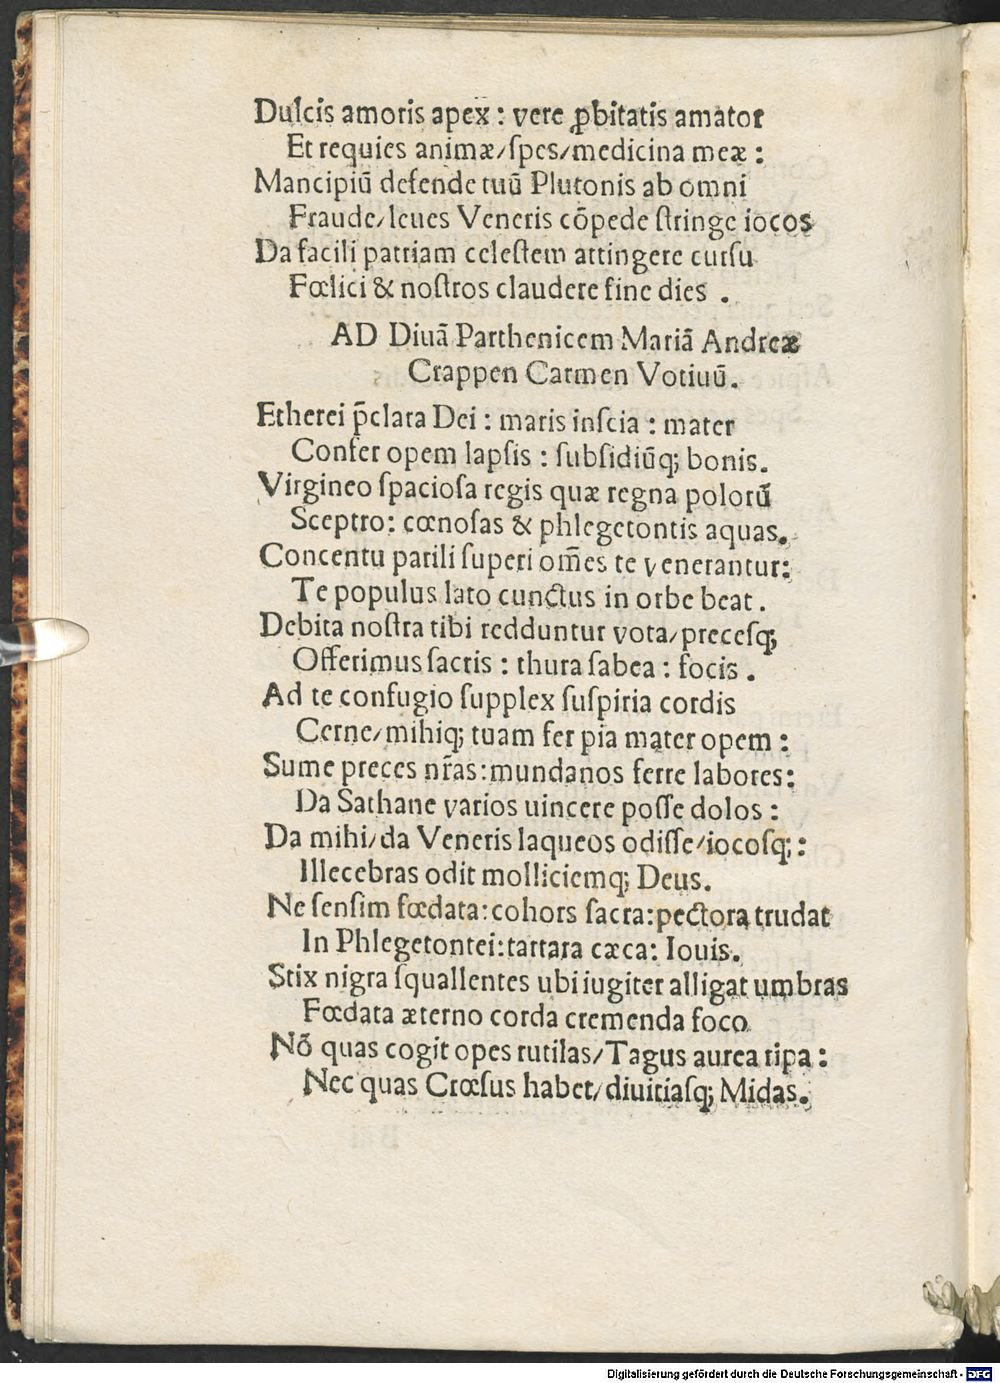 Dulcis amoris apex : vere ꝓbitatis amator
Et requies animæ/ſpes/medicina meæ :
Mancipiū defende tuū Plutonis ab omni
Fraude/leues Veneris cōpede ſtringe iocos
Da facili patriam celeſtem attingere curſu
Fœlici & noſtros claudere fine dies .
AD Diuā Parthenicem Mariā Andreæ
Crappen Carmen Votiuū.
Etherei p̄clara Dei : maris inſcia : mater
Confer opem lapſis : ſubſidiūq; bonis.
Virgineo ſpacioſa regis quæ regna polorū
Sceptro: cœnoſas & phlegetontis aquas.
Concentu parili ſuperi om̄es te venerantur:
Te populus lato cunctus in orbe beat .
Debita noſtra tibi redduntur vota/preceſq;
Offerimus ſacris : thura ſabea : focis .
Ad te confugio ſupplex ſuſpiria cordis
Cerne/mihiq; tuam fer pia mater opem :
Sume preces nr̄as:mundanos ferre labores:
Da Sathane varios uincere poſſe dolos :
Da mihi/da Veneris laqueos odiſſe/iocoſq; :
Illecebras odit molliciemq; Deus.
Ne ſenſim fœdata:cohors ſacra:pectora trudat
In Phlegetontei:tartara cæca: Iouis.
Stix nigra ſquallentes ubi iugiter alligat umbras
Fœdata æterno corda cremenda foco
Nō quas cogit opes rutilas/Tagus aurea ripa :
Nec quas Crœſus habet/diuitiaſq; Midas.
Digitalisierung gefördert durch die Deutsche Forschungsgemeinschaft - DFG